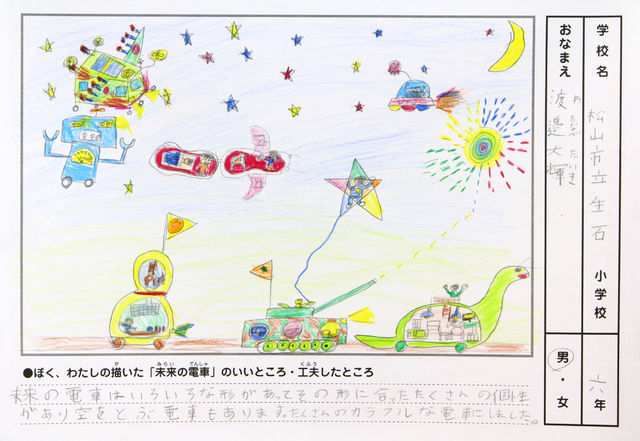 学校名
松山市立生石
小学校
六年
おなまえ
わたなべ たいき
渡邊大輝
男・女
●ぼく、わたしの描いた「未来の電車」のいいところ・工夫したところ
か
みらい
でんしゃ
くふう
未来の電車はいろいろな形があってその形に合ったたくさんの個性
があり空をとぶ電車もあります。たくさんのカラフルな電車にしました。